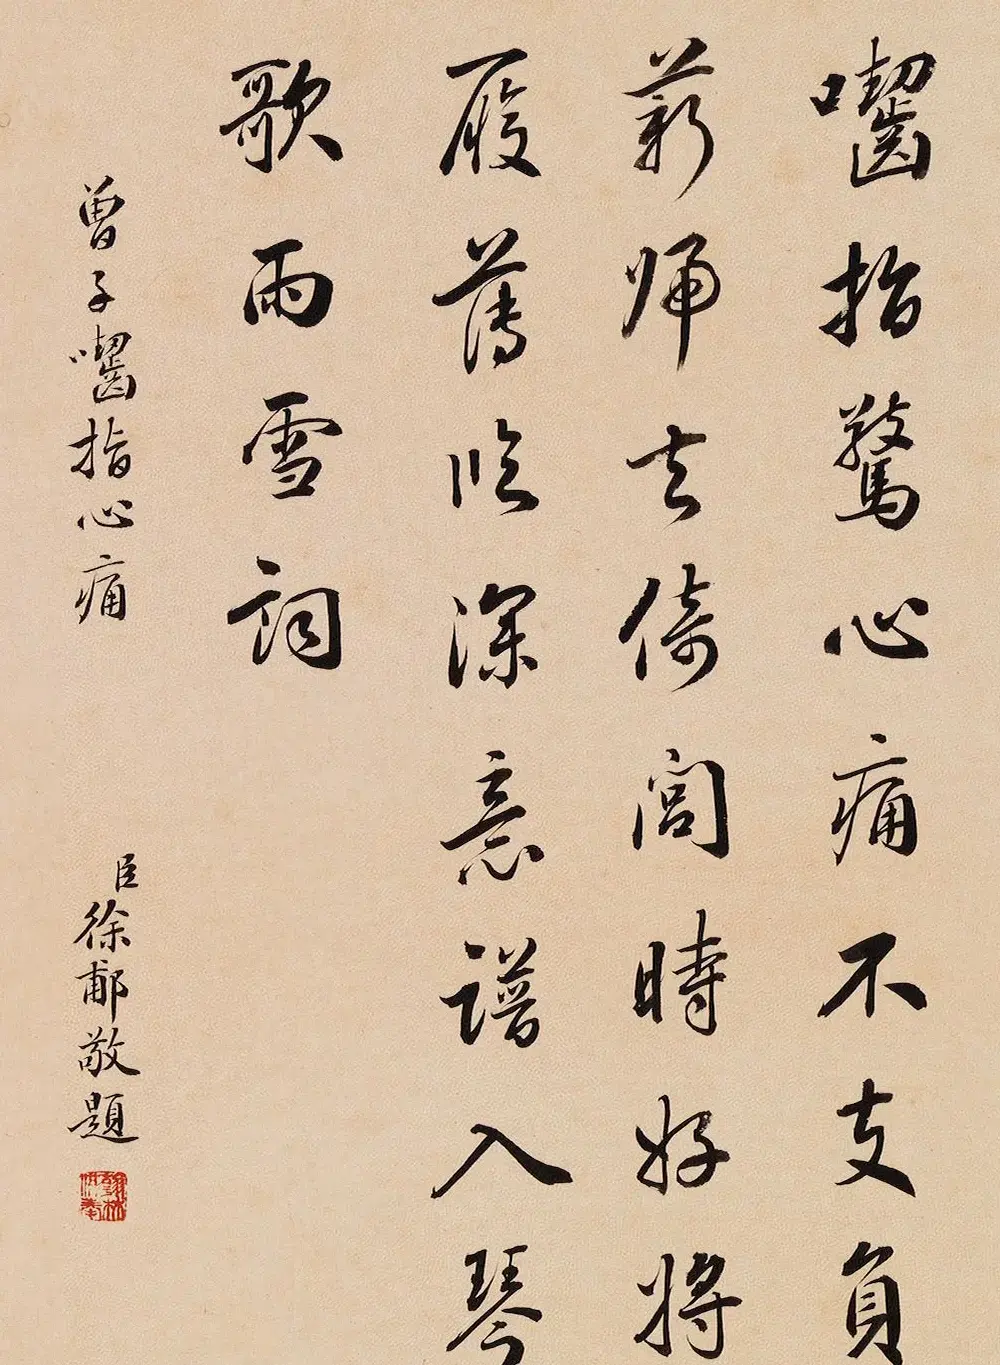 囓指驚心痛不支負
薪歸去倚閭時好將
履薄臨深意譜入琴
歌雨雪詞
曾子囓指心痛
臣徐郙敬題